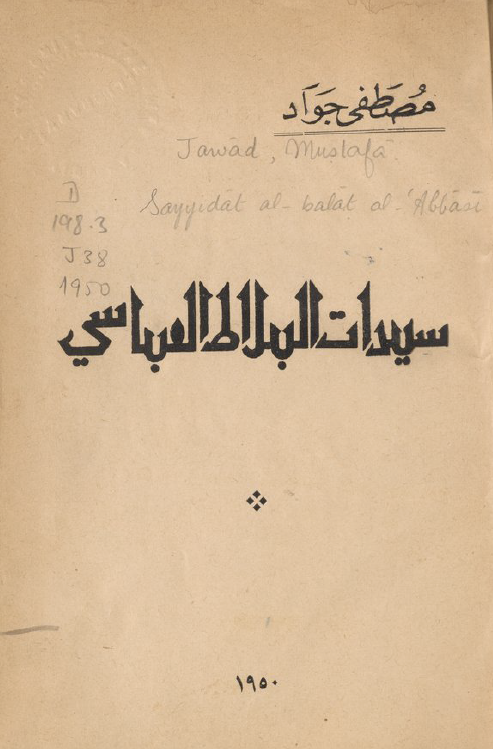 مُصْطَفى جَوَاد
Jawād, Muṣṭafā.
Sayyidāt al-balāt al-'Abbāsī
D
198.3
J38
1950
سيدات البلاط العباسي
١٩٥٠